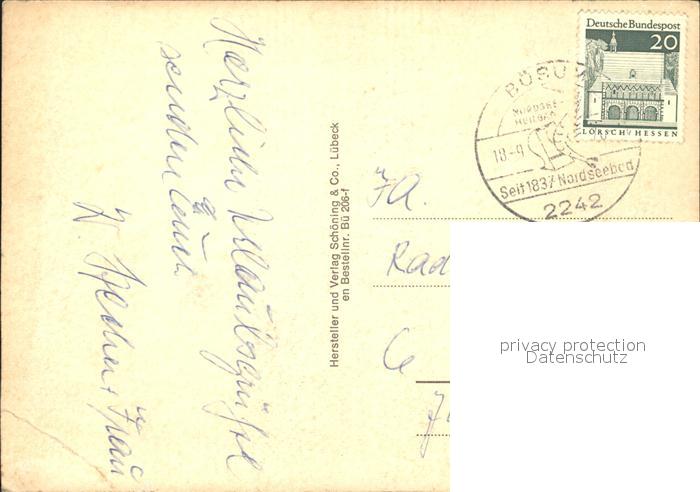 Herzliche Urlaubsgrüße
senden
Hersteller und Verlag Schöning & Co., Lübeck
en Bestellnr. Bü 206-f
Deutsche Bundespost
20
LORSCH/HESSEN
BÜSUM
NORDSEE-
HEIL
18-9
Seit 1837 Nordseebad
2242
Fa.
Rad
6
privacy protection
Datenschutz